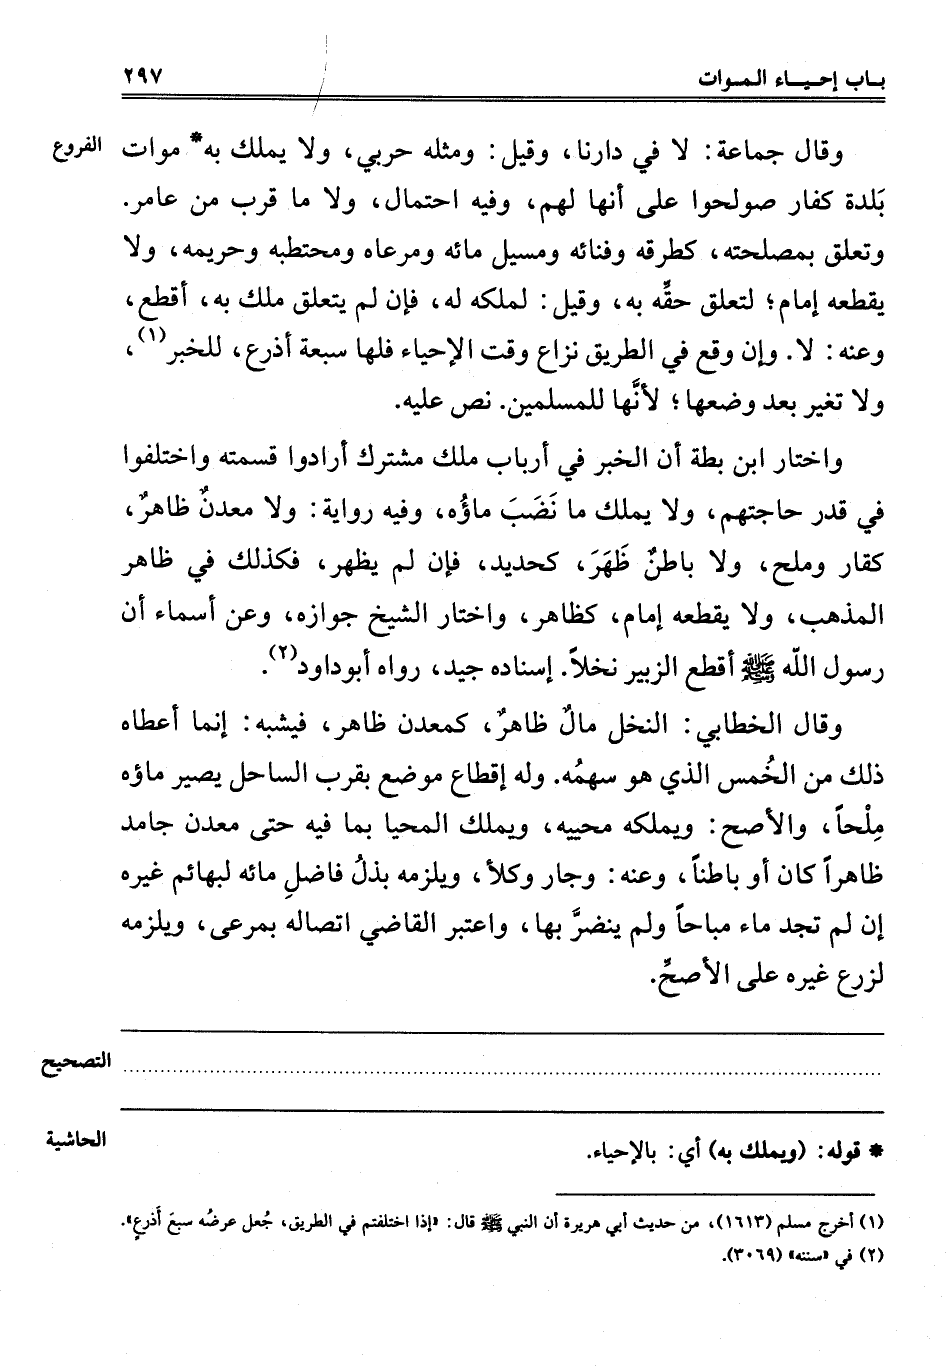 باب إحياء الموات
٢٩٧
الفروع
وقال جماعة: لا في دارنا، وقيل: ومثله حربي، ولا يملك به* موات
بَلدة كفار صولحوا على أنها لهم، وفيه احتمال، ولا ما قرب من عامر.
وتعلق بمصلحته، كطرقه وفنائه ومسيل مائه ومرعاه ومحتطبه وحريمه، ولا
يقطعه إمام؛ لتعلق حقِّه به، وقيل: لملكه له، فإن لم يتعلق ملك به، أقطع،
وعنه: لا. وإن وقع في الطريق نزاع وقت الإحياء فلها سبعة أذرع، للخبر(١)،
ولا تغير بعد وضعها؛ لأنَّها للمسلمين. نص عليه.
واختار ابن بطة أن الخبر في أرباب ملك مشترك أرادوا قسمته واختلفوا
في قدر حاجتهم، ولا يملك ما نَضَبَ ماؤُه، وفيه رواية: ولا معدنٌ ظاهرٌ،
كقار وملح، ولا باطنٌ ظَهَرَ، كحديد، فإن لم يظهر، فكذلك في ظاهر
المذهب، ولا يقطعه إمام، كظاهر، واختار الشيخ جوازه، وعن أسماء أن
رسول الله ﷺ أقطع الزبير نخلاً. إسناده جيد، رواه أبوداود(٢).
وقال الخطابي: النخل مالٌ ظاهرٌ، كمعدن ظاهر، فيشبه: إنما أعطاه
ذلك من الخُمس الذي هو سهمُه. وله إقطاع موضع بقرب الساحل يصير ماؤه
مِلْحاً، والأصح: ويملكه محييه، ويملك المحيا بما فيه حتى معدن جامد
ظاهراً كان أو باطناً، وعنه: وجار وكلأ، ويلزمه بذلُ فاضلِ مائه لبهائم غيره
إن لم تجد ماء مباحاً ولم ينضرَّ بها، واعتبر القاضي اتصاله بمرعى، ويلزمه
لزرع غيره على الأصحِّ.
التصحيح
الحاشية
* قوله: (ويملك به) أي: بالإحياء.
(١) أخرج مسلم (١٦١٣)، من حديث أبي هريرة أن النبي ﷺ قال: «إذا اختلفتم في الطريق، جُعل عرضُه سبعَ أذرعٍ».
(٢) في «سننه» (٣٠٦٩).